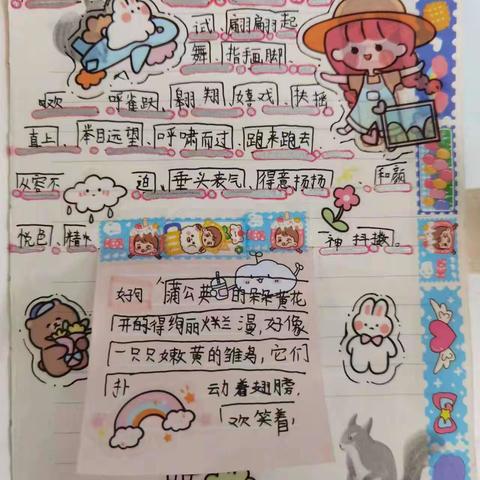 试、翩翩起
舞、指手画脚、
欢 呼雀跃、翱翔、嬉戏、扶摇
直上、举目远望、呼啸而过、跑来跑去、
从容不 迫、垂头丧气、得意扬扬、和颜
悦色、精 神抖擞。
好句
蒲公英的朵朵黄花
开的得绚丽烂漫,好像
一只只嫩黄的雏鸟,它们
扑 动着翅膀,
欢笑着,